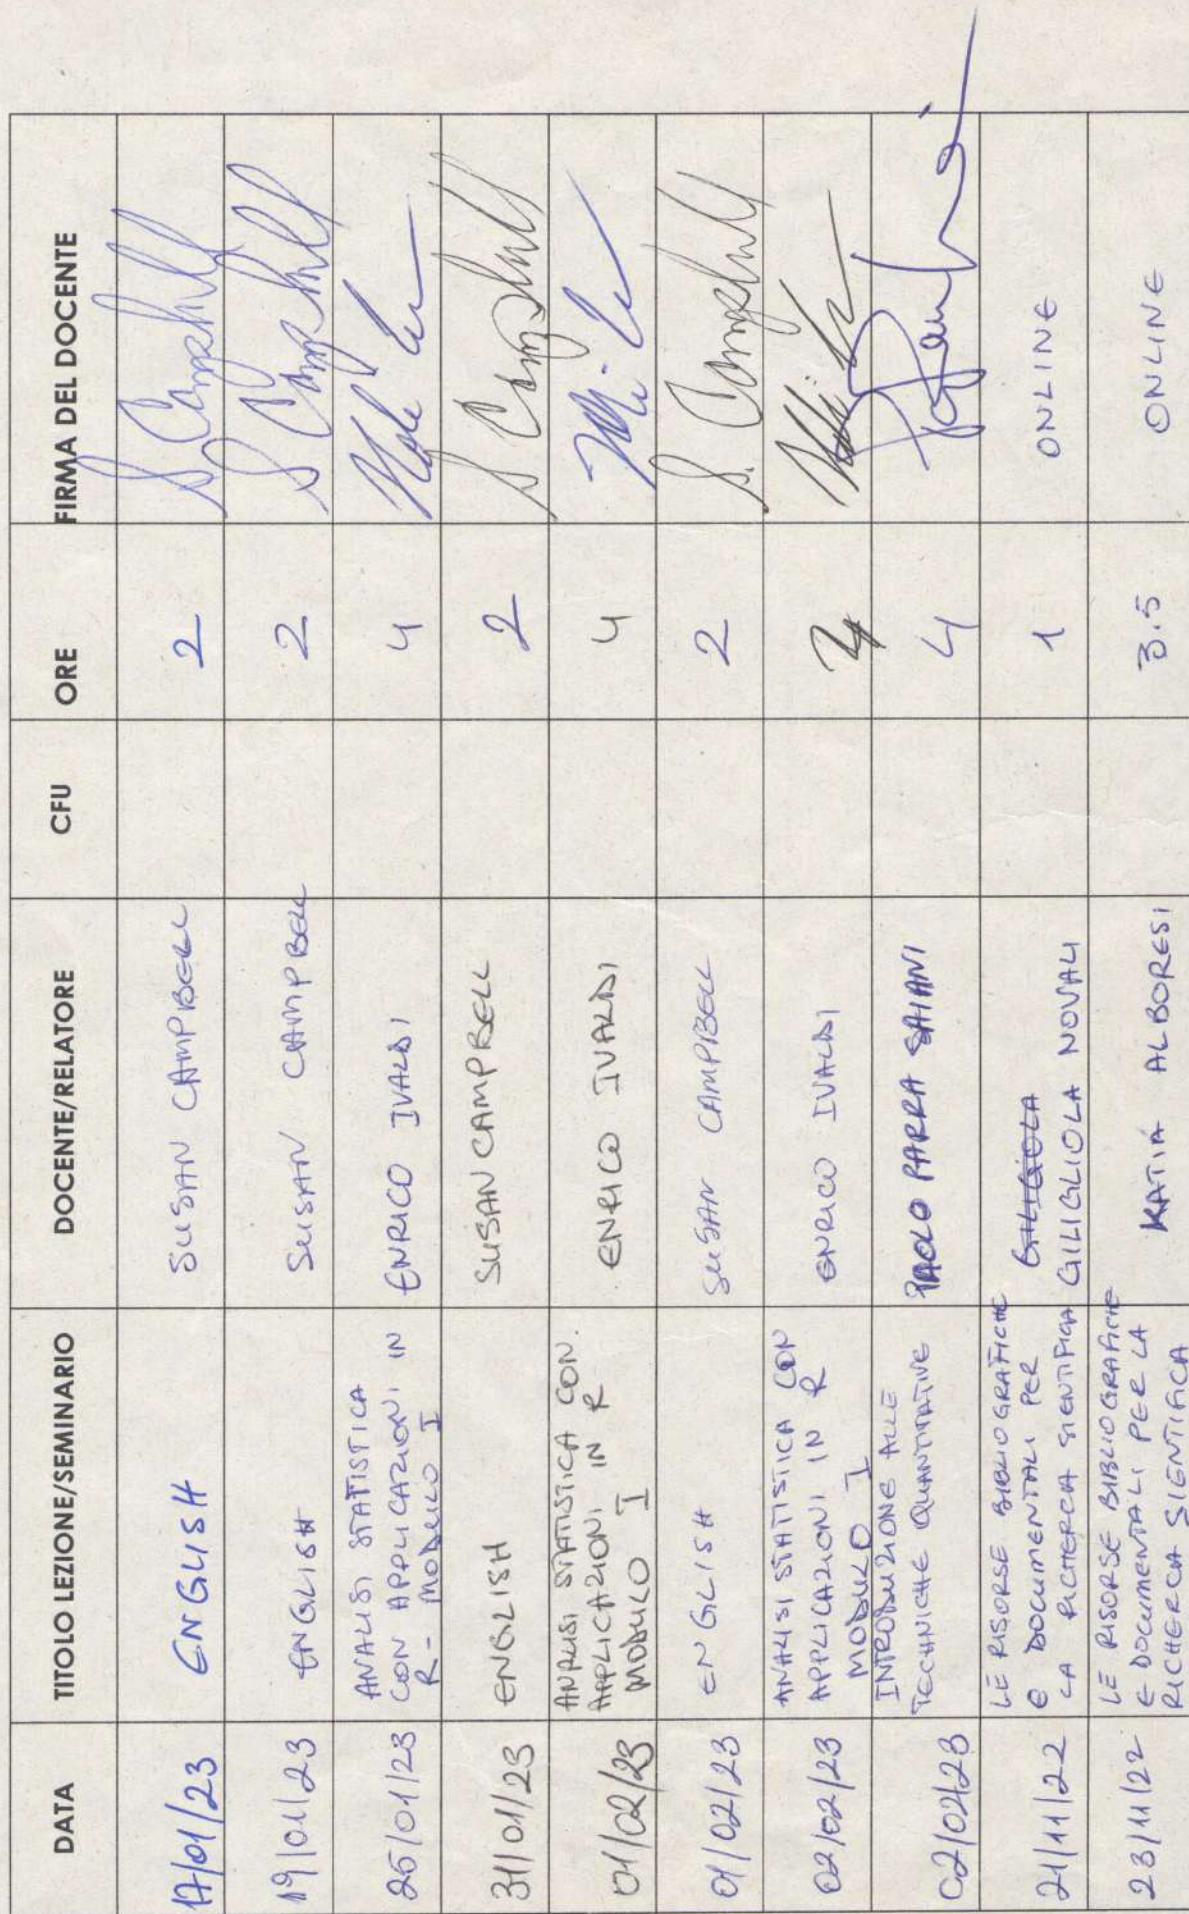 DATA TITOLO LEZIONE/SEMINARIO DOCENTE/RELATORE CFU ORE FIRMA DEL DOCENTE
17/01/23 ENGLISH SUSAN CAMPBELL 2 S Campbell
19/01/23 ENGLISH SUSAN CAMPBELL 2 S Campbell
ANALISI STATISTICA
CON APPLICAZIONI IN
25/01/23 R - MODULO I ENRICO IVALDI 4
31/01/23 ENGLISH SUSAN CAMPBELL 2 S Campbell
ANALISI STATISTICA CON
APPLICAZIONI IN R
01/02/23 MODULO I ENRICO IVALDI 4
01/02/23 ENGLISH SUSAN CAMPBELL 2 S. Campbell
ANALISI STATISTICA CON
APPLICAZIONI IN R
02/02/23 MODULO I ENRICO IVALDI 4
INTRODUZIONE ALLE
02/02/23 TECNICHE QUANTITATIVE PAOLO PARRA SAIANI 4
LE RISORSE BIBLIOGRAFICHE GILIGIOLA
E DOCUMENTALI PER
21/11/22 LA RICHERCA SIENTIFICA GILIGLIOLA NOVALI 1 ONLINE
LE RISORSE BIBLIOGRAFICHE
E DOCUMENTALI PER LA
23/11/22 RICHERCA SIENTIFICA KATIA ALBORESI 3.5 ONLINE